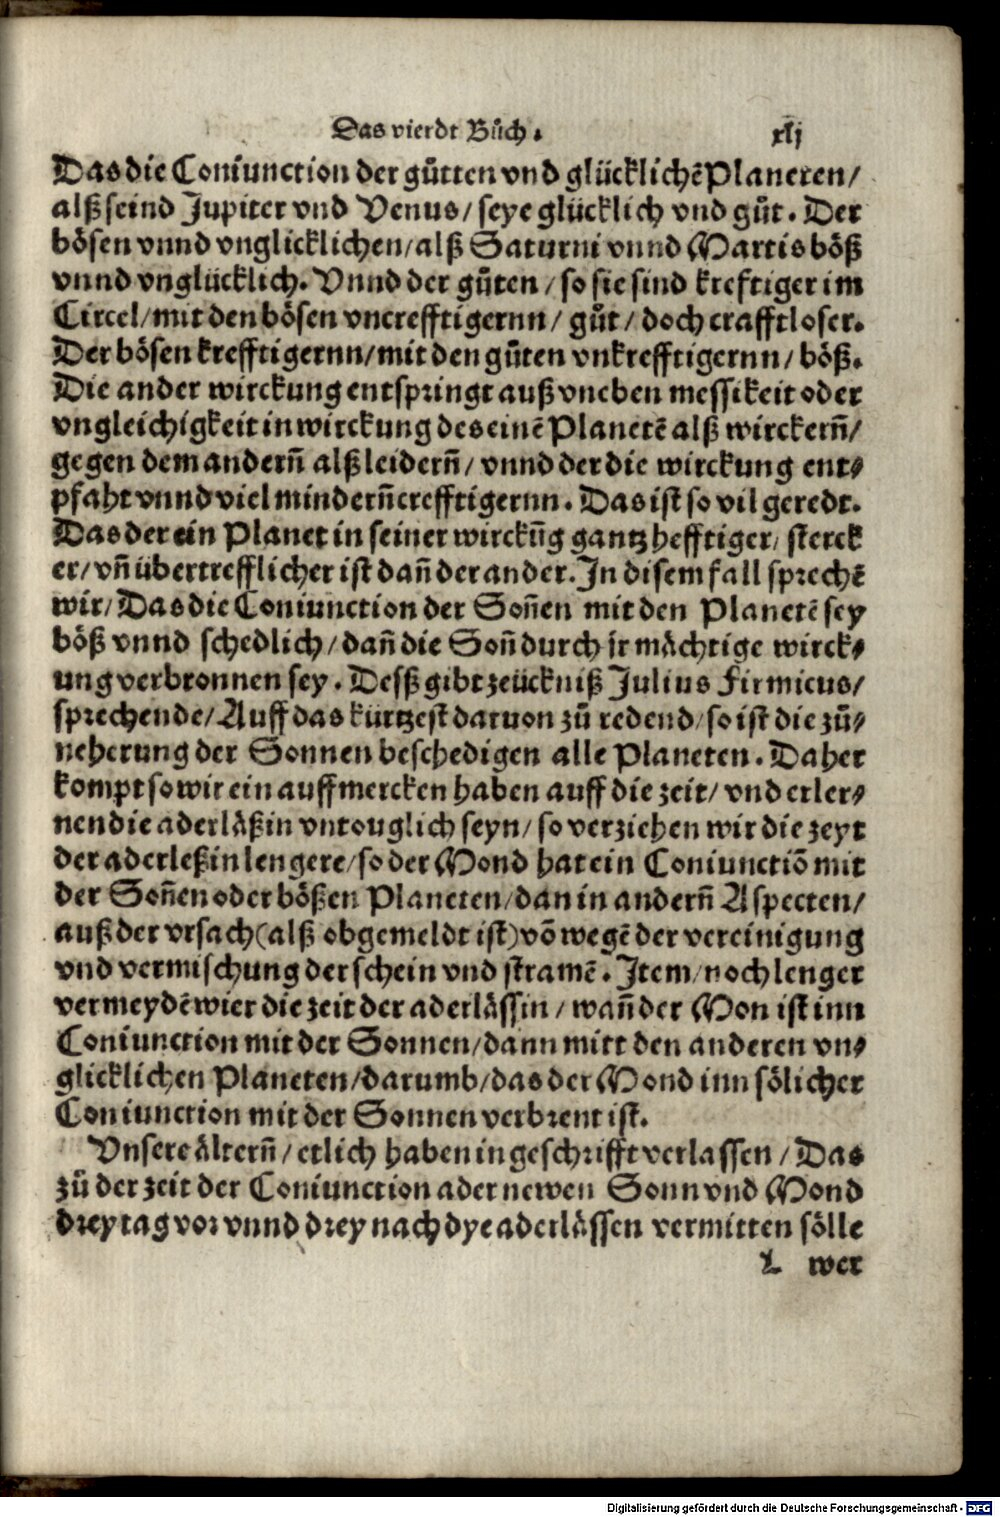 Das vierdt Bůch. xlj
Das die Coniunction der gůtten vnd glücklichē Planeten/
alß seind Jupiter vnd Venus/ seye glücklich vnd gůt. Der
bösen vnnd vnglicklichen/ alß Saturni vnnd Martis böß
vnnd vnglücklich. Vnnd der gůten/ so sie sind kreftiger im
Circel/ mit den bösen vncrefftigernn/ gůt/ doch crafftloser.
Der bösen krefftigernn/ mit den gůten vnkrefftigernn/ böß.
Die ander wirckung entspringt auß vneben messikeit oder
vngleichigkeit in wirckung des einē Planetē alß wirckerñ/
gegen dem anderñ alß leiderñ/ vnnd der die wirckung ent⸗
pfaht vnnd viel minderñ crefftigernn. Das ist so vil geredt.
Das der ein Planet in seiner wirckūg gantz hefftiger/ sterck
er/ vñ übertrefflicher ist dañ der ander. In disem fall sprechē
wir/ Das die Coniunction der Soñen mit den Planetē sey
böß vnnd schedlich/ dañ die Soñ durch ir mächtige wirck⸗
ung verbronnen sey. Desß gibt zeückniß Julius Firmicus/
sprechende/ Auff das kürtzest daruon zů redend/ so ist die zů⸗
neherung der Sonnen beschedigen alle Planeten. Daher
kompt so wir ein auffmercken haben auff die zeit/ vnd erler⸗
nen die aderläßin vntouglich seyn/ so verziehen wir die zeyt
der aderleßin lengere/ so der Mond hat ein Coniunctiō mit
der Soñen oder bößen Planeten/ dan in anderñ Aspecten/
auß der vrsach (alß obgemeldt ist) vō wegē der vereinigung
vnd vermischung der schein vnd stramē. Item/ noch lenger
vermeydē wier die zeit der aderlässin/ wañ der Mon ist inn
Coniunction mit der Sonnen/ dann mitt den anderen vn⸗
glicklichen Planeten/ darumb/ das der Mond inn sölicher
Coniunction mit der Sonnen verbrent ist.
Vnsere älterñ/ etlich haben in geschrifft verlassen/ Das
zů der zeit der Coniunction ader newen Sonn vnd Mond
drey tag vor vnnd drey nach dye aderlässen vermitten sölle
L wer
Digitalisierung gefördert durch die Deutsche Forschungsgemeinschaft - DFG